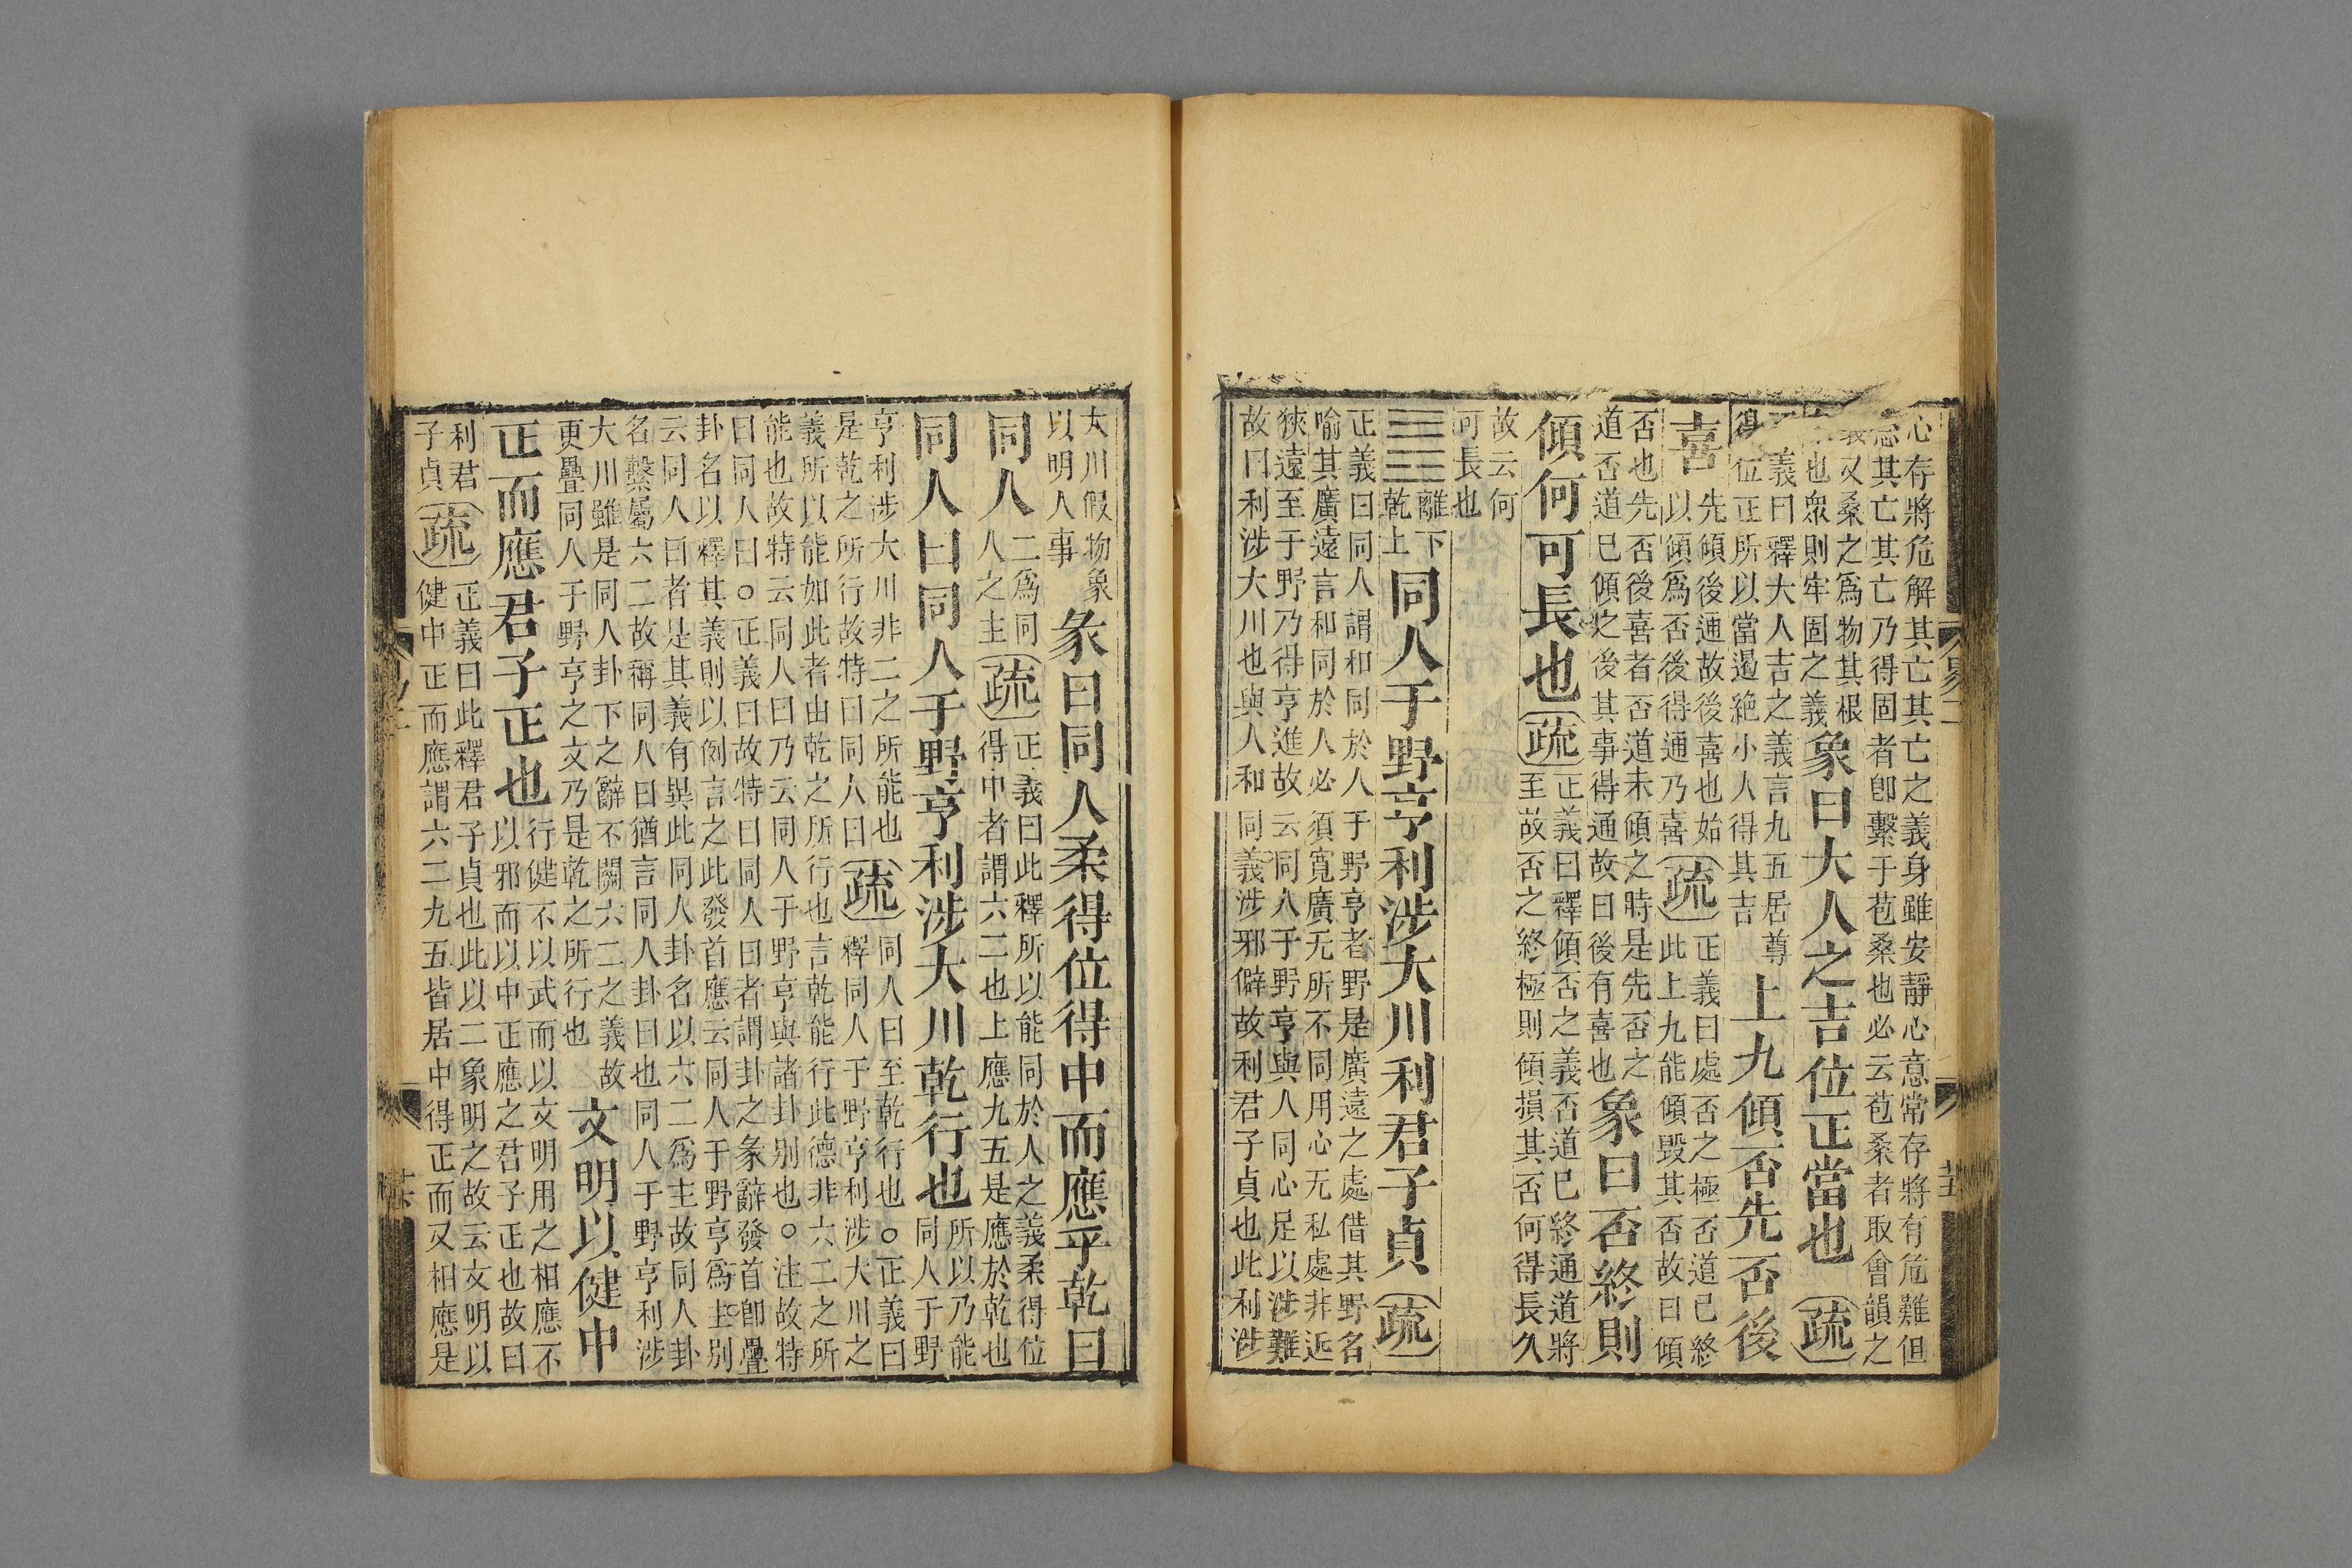 心存將危解其亡其亡之義身雖安靜心意常存將有危難但
念其亡其亡乃得固者卽繫于苞桑也必云苞桑者取會韻之
義又桑之為物其根
也衆則牢固之義象曰大人之吉位正當也疏
義曰釋大人吉之義言九五居尊
得位正所以當遏絕小人得其吉上九傾否先否後
喜先傾後通故後喜也始
以傾爲否後得通乃喜疏正義曰處否之極否道已終
此上九能傾毀其否故曰傾
否也先否後喜者否道未傾之時是先否之
道否道已傾之後其事得通故曰後有喜也象曰否終則
傾何可長也疏正義曰釋傾否之義否道已終通道將
至故否之終極則傾損其否何得長久
故云何
可長也
䷌離下
乾上同人于野亨利涉大川利君子貞疏
正義曰同人謂和同於人于野亨者野是廣遠之處借其野名
喻其廣遠言和同於人必須寬廣无所不同用心无私處非近
狹遠至于野乃得亨進故云同人于野亨與人同心足以涉難
故曰利涉大川也與人和同義涉邪僻故利君子貞也此利涉
大川假物象
以明人事彖曰同人柔得位得中而應乎乾曰
同人二爲同
人之主疏正義曰此釋所以能同於人之義柔得位
得中者謂六二也上應九五是應於乾也
同人曰同人于野亨利涉大川乾行也所以乃能
同人于野
亨利涉大川非二之所能也
是乾之所行故特曰同人曰疏同人曰至乾行也○正義曰
釋同人于野亨利涉大川之
義所以能如此者由乾之所行也言乾能行此德非六二之所
能也故特云同人曰乃云同人于野亨與諸卦别也○注故特
曰同人曰○正義曰故特曰同人曰者謂卦之彖辭發首卽疊
卦名以釋其義則以例言之此發首應云同人于野亨爲主别
云同人曰者是其義有異此同人卦名以六二爲主故同人卦
名繫屬六二故稱同人曰猶言同人卦曰也同人于野亨利涉
大川雖是同人卦下之辭不關六二之義故
更疊同人于野亨之文乃是乾之所行也文明以健中
正而應君子正也行健不以武而以文明用之相應不
以邪而以中正應之君子正也故曰
利君
子貞疏正義曰此釋君子貞也此以二象明之故云文明以
健中正而應謂六二九五皆居中得正而又相應是